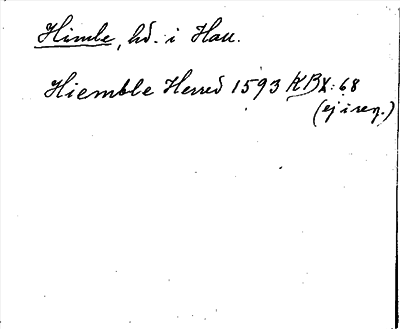 Himle, hd. i Hall.
Hiemble Herred 1593 KBX:68
(ej i reg.)